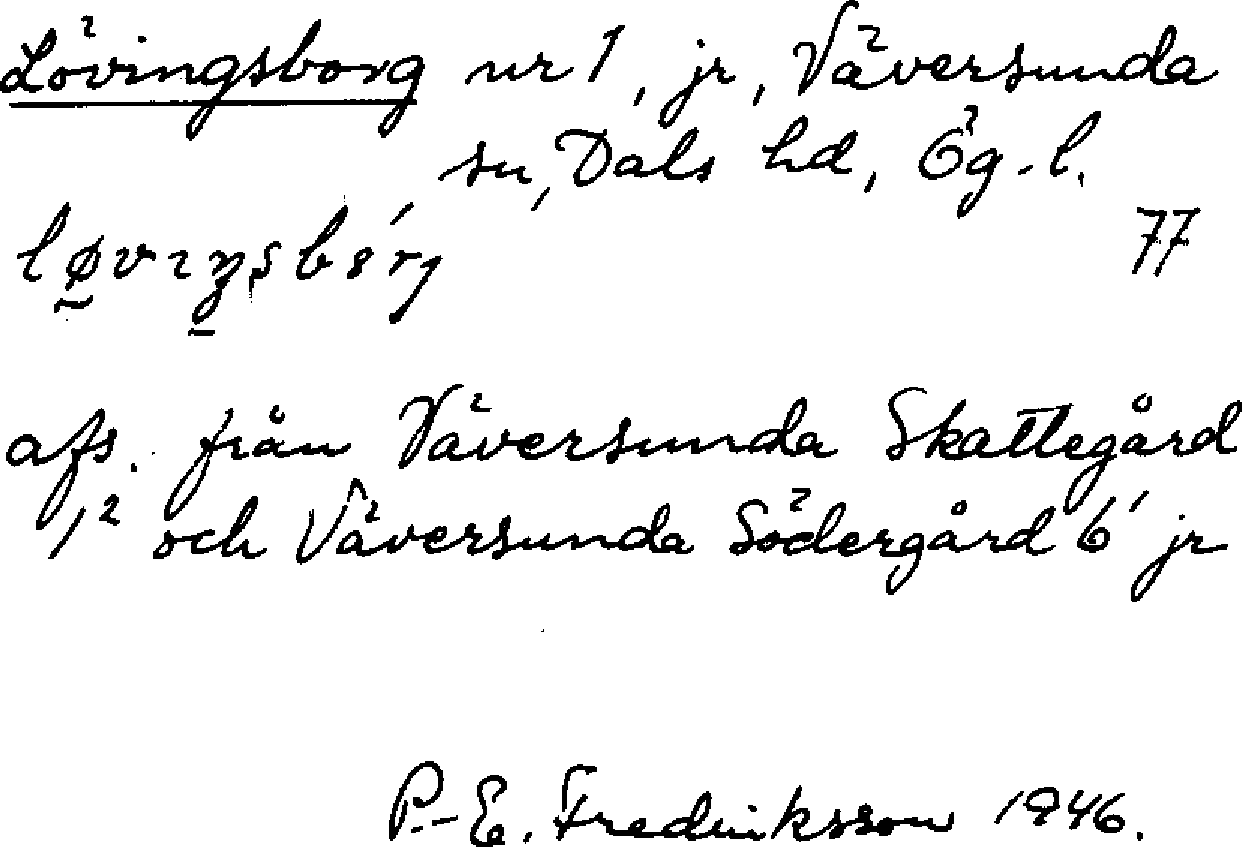 Lövingsborg nr 1, jr, Väversunda
sn, Dals hd, Ög.l.
77
afs. från Väversunda Skattegård
1² och Väversunda Södergård 6¹ jr
P.-E. Fredriksson 1946.